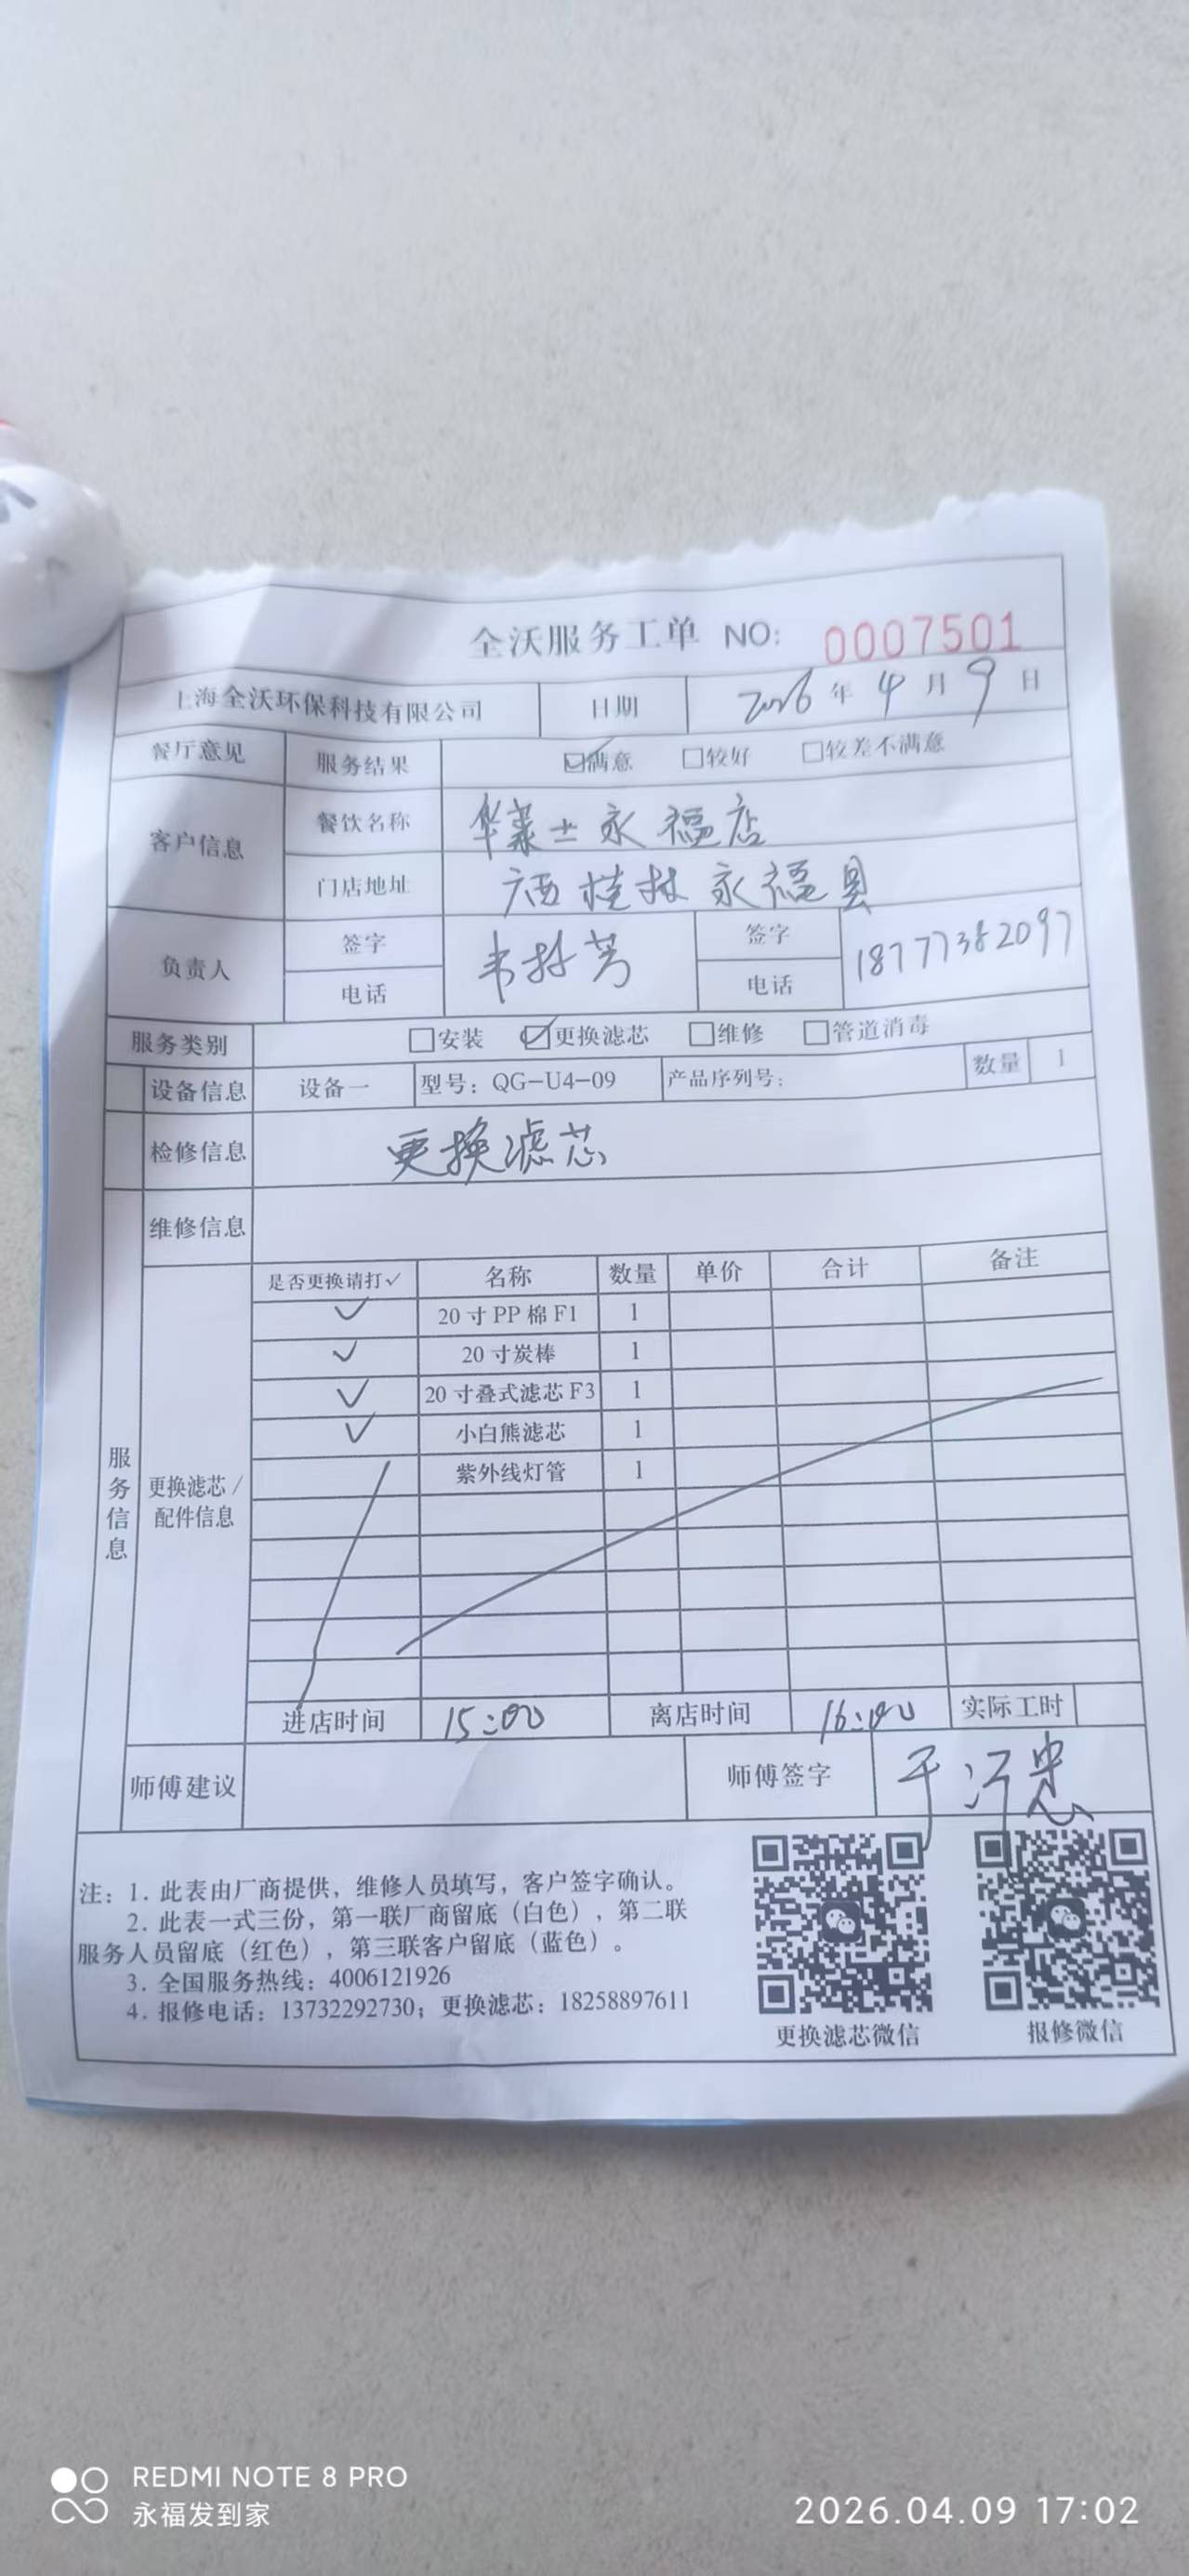 全沃服务工单 NO: 0007501
上海全沃环保科技有限公司 日期 2026年4月9日
餐厅意见 服务结果 ☑满意 □较好 □较差不满意
客户信息 餐饮名称 华莱士永福店
门店地址 广西桂林永福县
负责人 签字 签字 18777382097
电话 电话
服务类别 □安装 ☑更换滤芯 □维修 □管道消毒
设备信息 设备一 型号：QG-U4-09 产品序列号： 数量 1
检修信息 更换滤芯
维修信息
服务信息
更换滤芯/
配件信息
是否更换请打✓ 名称 数量 单价 合计 备注
✓ 20寸PP棉F1 1
✓ 20寸炭棒 1
✓ 20寸叠式滤芯F3 1
✓ 小白熊滤芯 1
紫外线灯管 1
进店时间 15:00 离店时间 16:00 实际工时
师傅建议 师傅签字
注：1. 此表由厂商提供，维修人员填写，客户签字确认。
2. 此表一式三份，第一联厂商留底（白色），第二联
服务人员留底（红色），第三联客户留底（蓝色）。
3. 全国服务热线：4006121926
4. 报修电话：13732292730；更换滤芯：18258897611
更换滤芯微信 报修微信
REDMI NOTE 8 PRO
永福发到家
2026.04.09 17:02